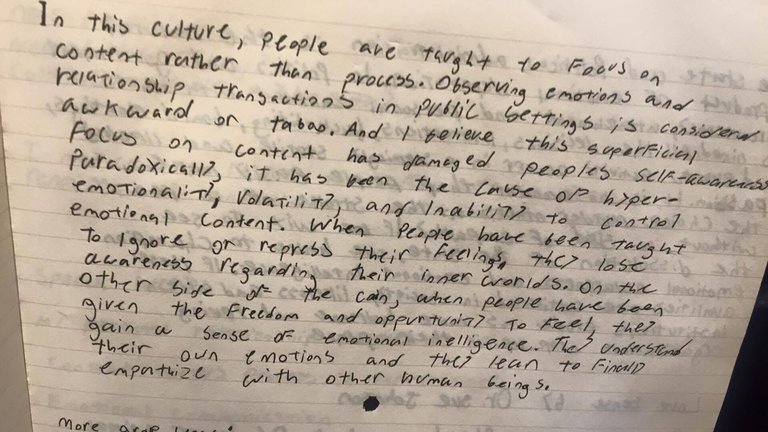 In this culture, people are taught to Focus on
content rather than process. Observing emotions and
relationship transactions in public settings is considered
awkward or taboo. And I believe this superficial
Focus on content has damaged peoples self-awareness
Paradoxically, it has been the cause of hyper-
emotionality, volatility, and Inability to control
emotional content. When people have been taught
to Ignore or repress their feelings, they lose
awareness regarding their inner worlds. On the
other side of the coin, when people have been
given the Freedom and oppurtunity to Feel, they
gain a sense of emotional inelligence. They understand
their own emotions and they lean to Finally
empathize with other human beings.
more